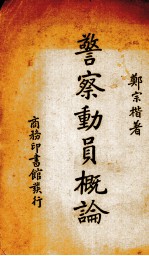 鄭宗楷著
警察動員概論
商務印書館發行